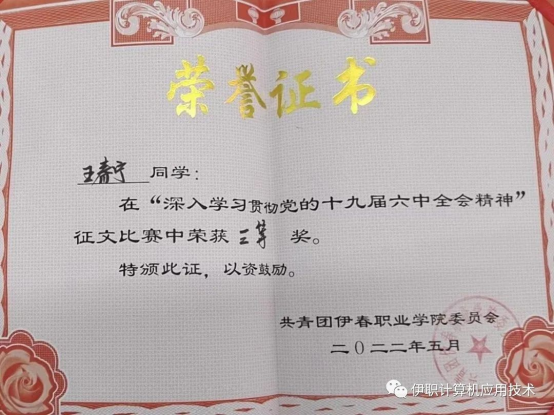 荣誉证书
王春宁 同学：
在“深入学习贯彻党的十九届六中全会精神”
征文比赛中荣获 三等 奖。
特颁此证，以资鼓励。
共青团伊春职业学院委员会
二〇二二年五月
伊职计算机应用技术